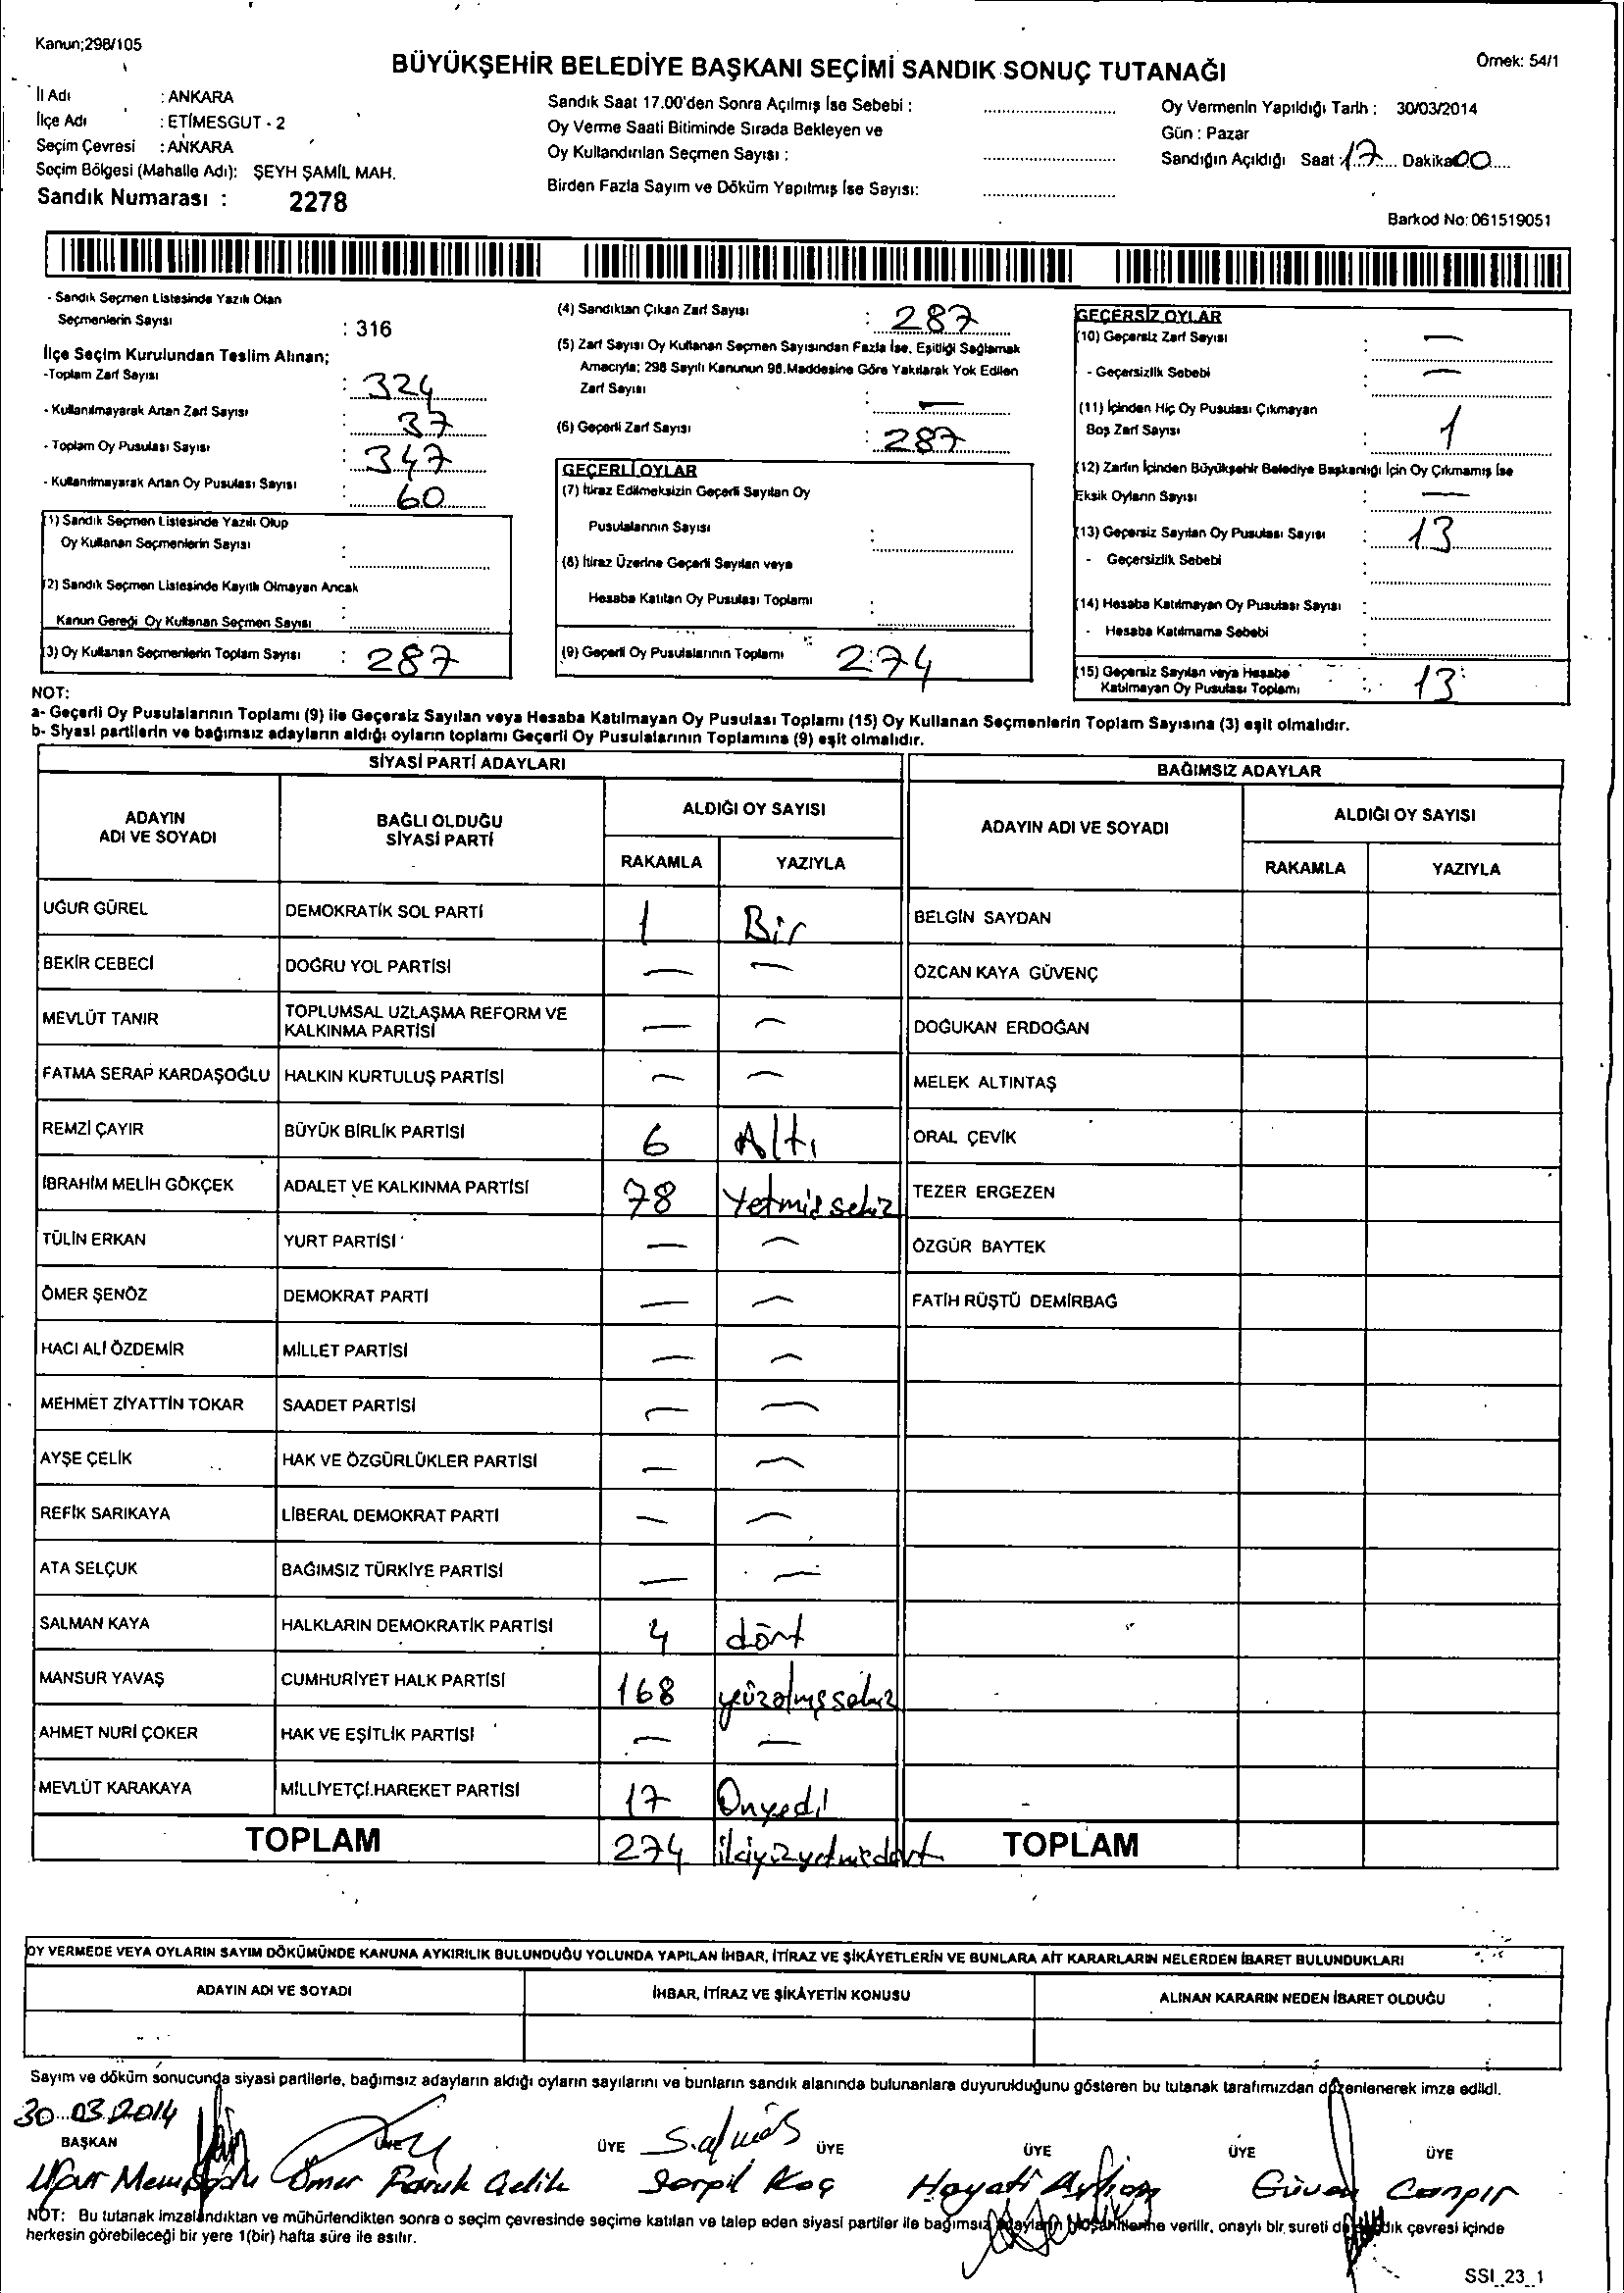 Kanun;298/105
Örnek: 54/1
BÜYÜKŞEHİR BELEDİYE BAŞKANI SEÇİMİ SANDIK SONUÇ TUTANAĞI
İl Adı : ANKARA
İlçe Adı : ETİMESGUT - 2
Seçim Çevresi : ANKARA
Seçim Bölgesi (Mahalle Adı): ŞEYH ŞAMİL MAH.
Sandık Numarası : 2278
Sandık Saat 17.00'den Sonra Açılmış İse Sebebi :
Oy Verme Saati Bitiminde Sırada Bekleyen ve
Oy Kullandırılan Seçmen Sayısı :
Birden Fazla Sayım ve Döküm Yapılmış İse Sayısı:
Oy Vermenin Yapıldığı Tarih : 30/03/2014
Gün : Pazar
Sandığın Açıldığı Saat : 17 Dakika 00
Barkod No: 061519051
- Sandık Seçmen Listesinde Yazılı Olan
Seçmenlerin Sayısı : 316
İlçe Seçim Kurulundan Teslim Alınan;
-Toplam Zarf Sayısı : 324
- Kullanılmayarak Artan Zarf Sayısı : 37
- Toplam Oy Pusulası Sayısı : 347
- Kullanılmayarak Artan Oy Pusulası Sayısı : 60
(1) Sandık Seçmen Listesinde Yazılı Olup
Oy Kullanan Seçmenlerin Sayısı :
(2) Sandık Seçmen Listesinde Kayıtlı Olmayan Ancak
Kanun Gereği Oy Kullanan Seçmen Sayısı :
(3) Oy Kullanan Seçmenlerin Toplam Sayısı : 287
(4) Sandıktan Çıkan Zarf Sayısı : 287
(5) Zarf Sayısı Oy Kullanan Seçmen Sayısından Fazla İse, Eşitliği Sağlamak
Amacıyla; 298 Sayılı Kanunun 98.Maddesine Göre Yakılarak Yok Edilen
Zarf Sayısı : —
(6) Geçerli Zarf Sayısı : 287
GEÇERLİ OYLAR
(7) İtiraz Edilmeksizin Geçerli Sayılan Oy
Pusulalarının Sayısı :
(8) İtiraz Üzerine Geçerli Sayılan veya
Hesaba Katılan Oy Pusulası Toplamı :
(9) Geçerli Oy Pusulalarının Toplamı : 274
GEÇERSİZ OYLAR
(10) Geçersiz Zarf Sayısı : —
- Geçersizlik Sebebi : —
(11) İçinden Hiç Oy Pusulası Çıkmayan
Boş Zarf Sayısı : 1
(12) Zarfın İçinden Büyükşehir Belediye Başkanlığı İçin Oy Çıkmamış İse
Eksik Oyların Sayısı : —
(13) Geçersiz Sayılan Oy Pusulası Sayısı : 13
- Geçersizlik Sebebi :
(14) Hesaba Katılmayan Oy Pusulası Sayısı :
- Hesaba Katılmama Sebebi :
(15) Geçersiz Sayılan veya Hesaba
Katılmayan Oy Pusulası Toplamı : 13
NOT:
a- Geçerli Oy Pusulalarının Toplamı (9) ile Geçersiz Sayılan veya Hesaba Katılmayan Oy Pusulası Toplamı (15) Oy Kullanan Seçmenlerin Toplam Sayısına (3) eşit olmalıdır.
b- Siyasi partilerin ve bağımsız adayların aldığı oyların toplamı Geçerli Oy Pusulalarının Toplamına (9) eşit olmalıdır.
SİYASİ PARTİ ADAYLARI
ADAYIN ADI VE SOYADI
BAĞLI OLDUĞU SİYASİ PARTİ
ALDIĞI OY SAYISI
RAKAMLA YAZIYLA
UĞUR GÜREL DEMOKRATİK SOL PARTİ 1 Bir
BEKİR CEBECİ DOĞRU YOL PARTİSİ — —
MEVLÜT TANIR TOPLUMSAL UZLAŞMA REFORM VE KALKINMA PARTİSİ — —
FATMA SERAP KARDAŞOĞLU HALKIN KURTULUŞ PARTİSİ — —
REMZİ ÇAYIR BÜYÜK BİRLİK PARTİSİ 6 Altı
İBRAHİM MELİH GÖKÇEK ADALET VE KALKINMA PARTİSİ 78 Yetmişsekiz
TÜLİN ERKAN YURT PARTİSİ — —
ÖMER ŞENÖZ DEMOKRAT PARTİ — —
HACI ALİ ÖZDEMİR MİLLET PARTİSİ — —
MEHMET ZİYATTİN TOKAR SAADET PARTİSİ — —
AYŞE ÇELİK HAK VE ÖZGÜRLÜKLER PARTİSİ — —
REFİK SARIKAYA LİBERAL DEMOKRAT PARTİ — —
ATA SELÇUK BAĞIMSIZ TÜRKİYE PARTİSİ — —
SALMAN KAYA HALKLARIN DEMOKRATİK PARTİSİ 4 dört
MANSUR YAVAŞ CUMHURİYET HALK PARTİSİ 168 yüzatmışsekiz
AHMET NURİ ÇOKER HAK VE EŞİTLİK PARTİSİ — —
MEVLÜT KARAKAYA MİLLİYETÇİ HAREKET PARTİSİ 17 Onyedi
TOPLAM 274 ikiyüzyetmişdört
BAĞIMSIZ ADAYLAR
ADAYIN ADI VE SOYADI
ALDIĞI OY SAYISI
RAKAMLA YAZIYLA
BELGİN SAYDAN
ÖZCAN KAYA GÜVENÇ
DOĞUKAN ERDOĞAN
MELEK ALTINTAŞ
ORAL ÇEVİK
TEZER ERGEZEN
ÖZGÜR BAYTEK
FATİH RÜŞTÜ DEMİRBAĞ
TOPLAM
OY VERMEDE VEYA OYLARIN SAYIM DÖKÜMÜNDE KANUNA AYKIRILIK BULUNDUĞU YOLUNDA YAPILAN İHBAR, İTİRAZ VE ŞİKÂYETLERİN VE BUNLARA AİT KARARLARIN NELERDEN İBARET BULUNDUKLARI
ADAYIN ADI VE SOYADI
İHBAR, İTİRAZ VE ŞİKÂYETİN KONUSU
ALINAN KARARIN NEDEN İBARET OLDUĞU
Sayım ve döküm sonucunda siyasi partilerle, bağımsız adayların aldığı oyların sayılarını ve bunların sandık alanında bulunanlara duyurulduğunu gösteren bu tutanak tarafımızdan düzenlenerek imza edildi.
30.03.2014
BAŞKAN ÜYE ÜYE ÜYE ÜYE ÜYE ÜYE
Ömer Faruk Çelik Serpil Koç Hayati Güven Canpir
NOT: Bu tutanak imzalandıktan ve mühürlendikten sonra o seçim çevresinde seçime katılan ve talep eden siyasi partiler ile bağımsız adayların müşahitlerine verilir, onaylı bir sureti de sandık çevresi içinde
herkesin görebileceği bir yere 1(bir) hafta süre ile asılır.
SSI_23_1